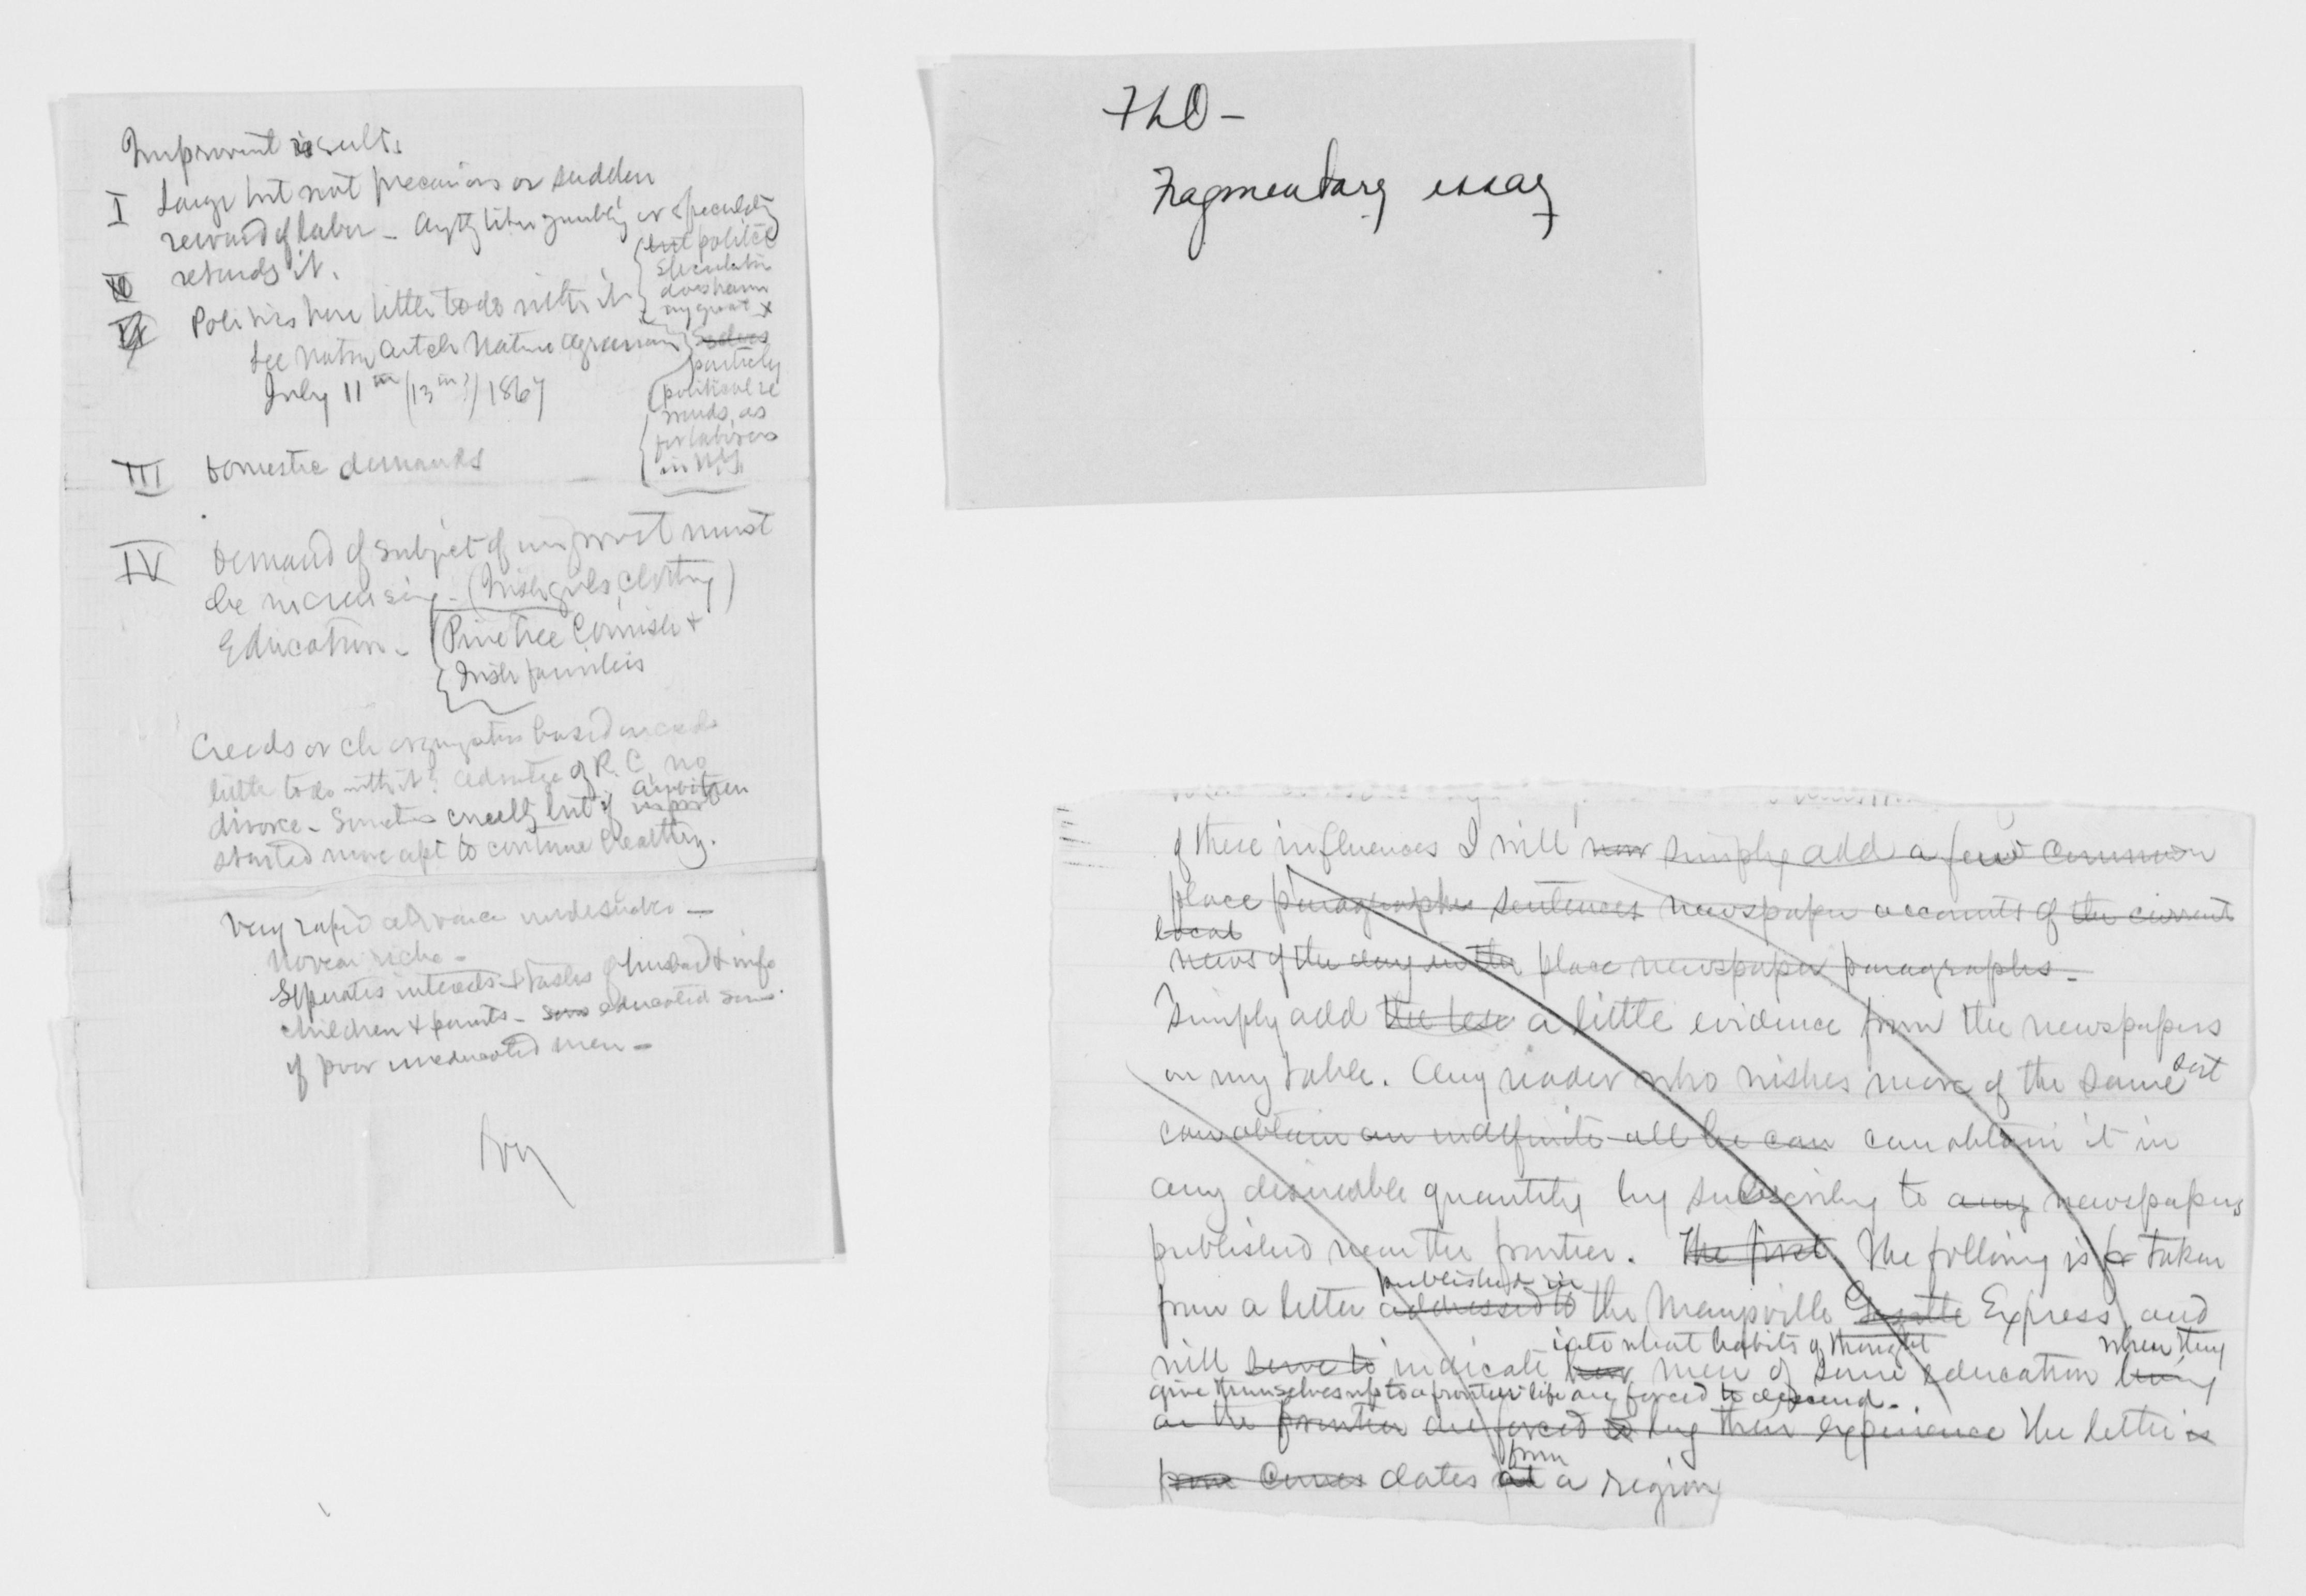 Improvmt results
I Large but not precarious or sudden
reward of labor - Anythg like gambling or speculatg
retards it.
II Politics have little to do with it
but politcl
speculatn
does harm
See Nation Article Native Agrarianism
July 11th (13th?) 1867
partially
political re
wards, as
for laborers
in N.Y.
III Domestic demands
IV Demand of subject of improvmt must
be increasing - (Irish girls, clothing)
Education - Pine tree Cornish &
Irish families
Creeds or Ch organizatns based on creeds
little to do with it? Advantge of R. C. no
divorce - Sometimes cruelty but if ambition
started more apt to continue healthy.
Very rapid advance undesirable -
Noveau riche -
Seperates interests & tastes of husband & wife
children & parents - sons educated sons
of poor uneducated men -
FLO -
Fragmentary essay
of these influences I will now simply add a few common
place paragraphs sentences newspaper accounts of the current
local
news of the day in the place newspaper paragraphs -
Simply add the test a little evidence from the newspapers
on my table. Any reader who wishes more of the same sort
can obtain an indefinite all he can can obtain it in
any desireable quantity by subscribing to any newspapers
published near the frontier. The first The following is taken
published in
from a letter addressed to the Marysville Gazette Express and
into what habits of thought when they
will serve to indicate how men of some education living
give themselves up to a frontier life are forced to descend.
on the frontier are forced to by their experience The letter is
from
from Comes dates at a region